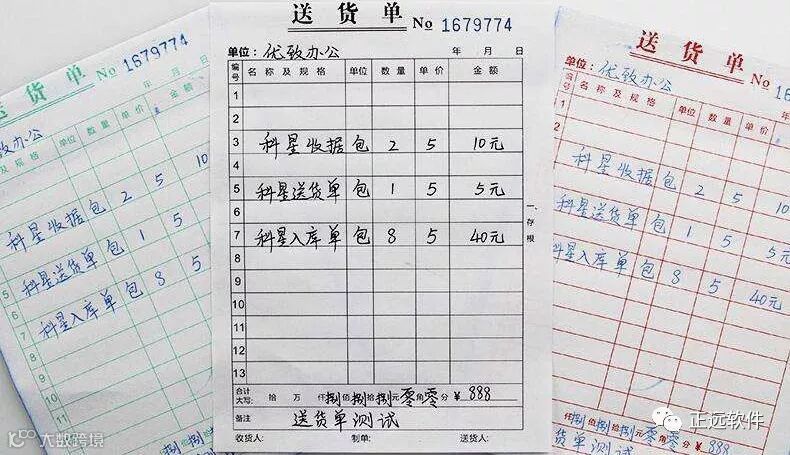 送货单 No 1679774
年 月 日
金额
单价
数量
单位
规格
优致办公
科星收据 包 2 5 10
5 科星送货单 包 1 5
6
7 科星入库单 包 8 5
8
9
10
11
捌 捌
送货单 No 1679774
单位: 优致办公 年 月 日
编号 名称及规格 单位 数量 单价 金额
1
2
3 科星收据 包 2 5 10元
4
5 科星送货单 包 1 5 5元
6
7 科星入库单 包 8 5 40元
8
9
10
11
12
13
一、存根
合计大写: 拾 万 仟 捌 佰 捌 拾 捌 元 零 角 零 分 ¥ 888
备注 送货单测试
收货人: 制单: 送货人:
送货单 No 16
单位: 优致办公 年
编号 名称及规格 单位 数量 单价 金
1
科星收据 包 2 5 10
科星送货单 包 1 5 5元
科星入库单 包 8 5 40元
仟 捌 佰 捌 拾 捌 元 零 角 零 分 ¥ 888
货单测试
正远软件
大数跨境